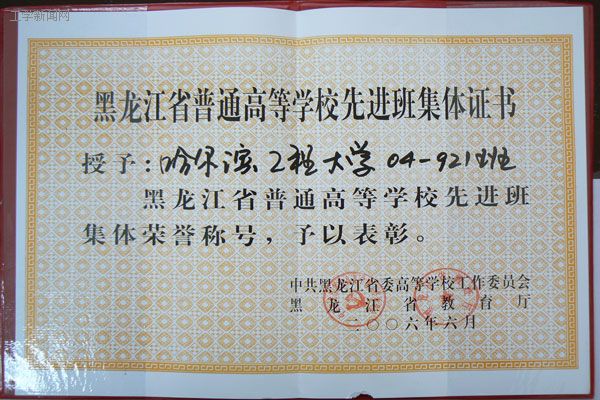 工学新闻网
黑龙江省普通高等学校先进班集体证书
授予：哈尔滨工程大学04-921班
黑龙江省普通高等学校先进班
集体荣誉称号，予以表彰。
中共黑龙江省委高等学校工作委员会
黑龙江省教育厅
二〇〇六年六月